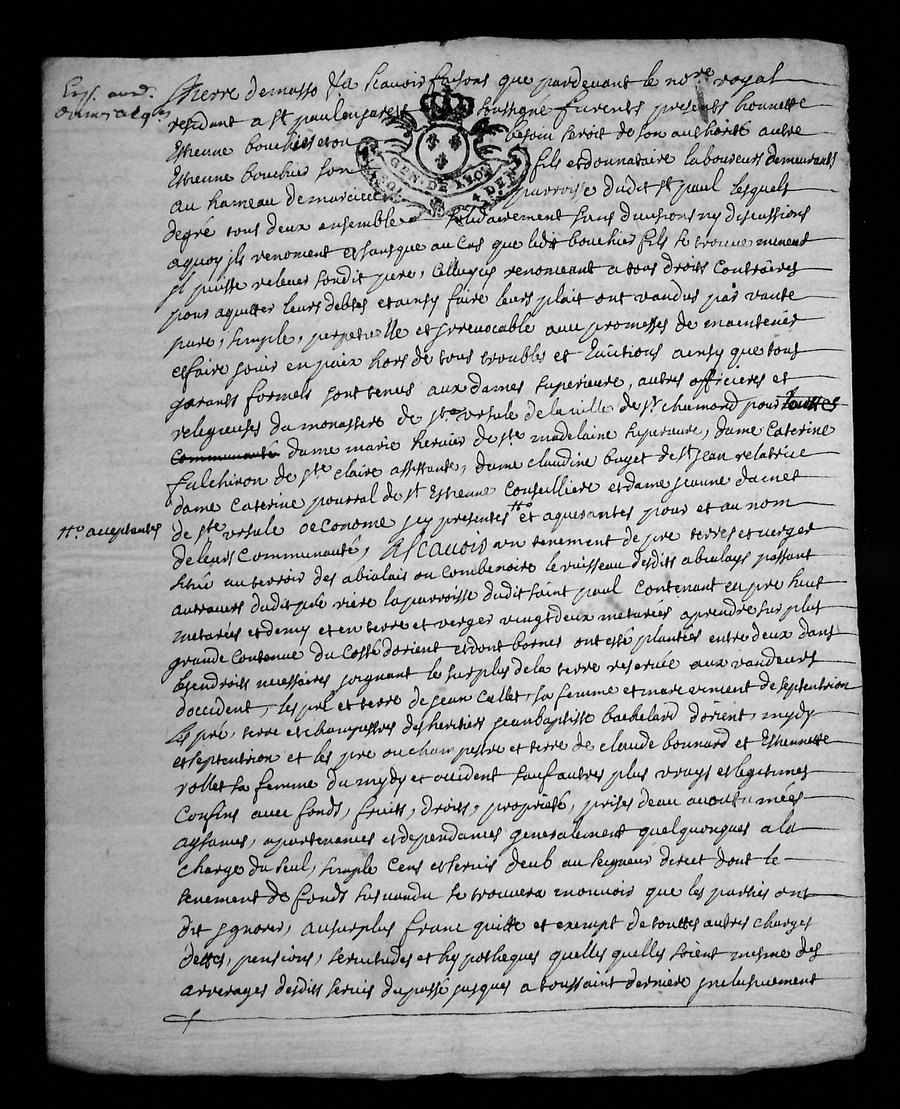 Pierre demasso &a scavoir faisons que pardevant le no.re royal
residant a st paul en jarest soussigné furents presents honneste
Estienne bouchier et on besoin seroit de son authorité autre
Estienne bouchier son fils et donnataire laboureurs demeurants
au hameau de parroisse dudit st paul lesquels
degré tous deux ensemble solidairement sans divisions ny discussions
aquoy ils renoncent et sansque au cas que ledit bouchier fils se trouve mineur
il puisse relever sondit pere, celluycy renonceant a tous droits contraires
pour aquitter leurs debtes et ainsy faire leurs plait ont vandus par vante
pure, simple, perpetuelle et irrevocable avec promesses de maintenir
et faire jouir en paix hors de tous troubles et evictions ainsy que tout
garants formels sont tenus aux dames superieure, autres officieres et
relegieuses du monastere de ste ursule de la ville de st chamond pour touttes
communauté dame marie de ste madelaine superieure, dame caterine
fulchiron de ste claire assistante, dame claudine buyet de st jean relatrice
dame caterine pourral de st Estienne conseilliere et dame jeanne dacnet
de ste ursule oeconome icy presentes # et aquerantes pour et au nom
de leurs communauté, Ascavoir un tenement de pré terres et verger
situé au terroir des abialais ou combenoire le ruisseau desdits abialays passant
autravers dudit pré riere la parroisse dudit saint paul contenant en pre huit
metarées et demy et en terre et verger vingt deux metarées aprendre sur plus
grande contenue du costé dorient et dont bornes ont esté plantées entre deux dans
les endroits necessaires joignant le surplus de la terre reservée aux vandeurs
doccident, les pré et terre de jean Collet, sa femme et marc viment de septentrion
les pré, terre et champestres des heritiers jean baptiste bachelard dorient, mydy
et septentrion et les pre ou champestre et terre de claude bonnard et Estiennette
rollet sa femme du mydy et occident sauf autres plus vrays et legitimes
confins avec fonds, fruits, droits, proprieté, prises deau acoutumées
aysances, apartenances et dependances generalement quelquonques a la
charge du seul, simple cens et servis deub au seigneur direct dont le
tenement de fonds susvandu se trouvera mouvoir que les parties ont
dit ignorer, au surplus franc quitte et exempt de touttes autres charges
dettes, pensions, servitudes et hypotheques quelles quelles soient mesme des
arrerages desdits servis du passé jusques a toussaint derniere inclusivement
Exp. aud.
#. acceptantes
GEN. DE LYON